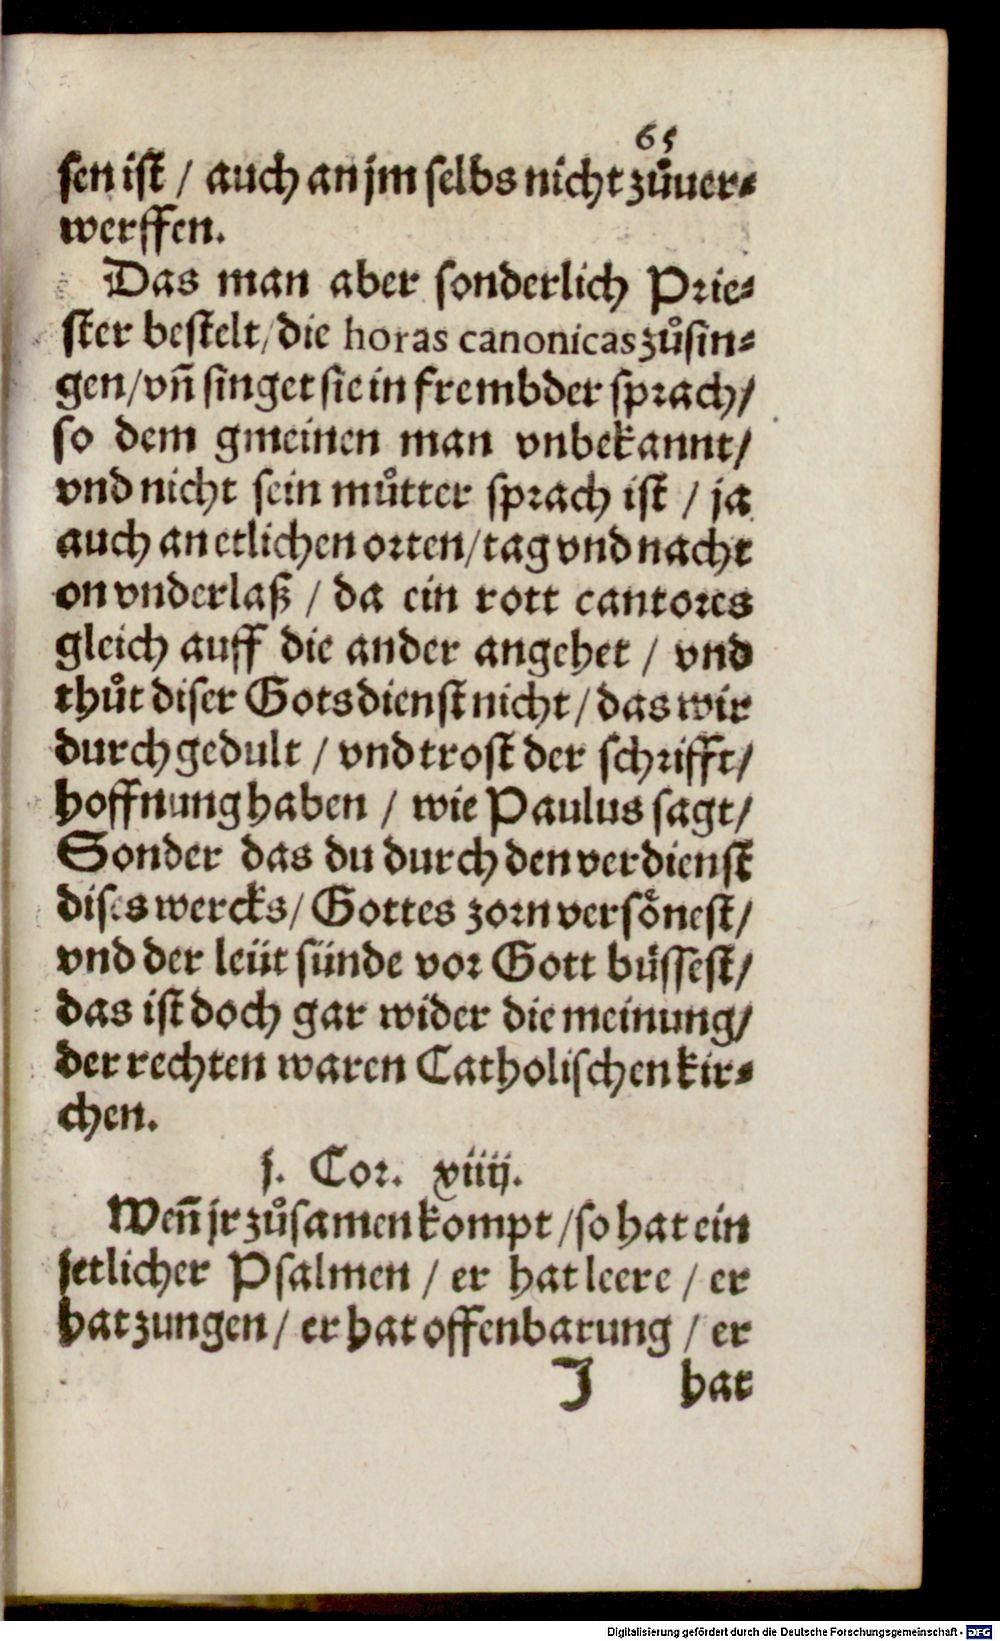 65
sen ist / auch an jm selbs nicht zůuer⸗
werffen.
Das man aber sonderlich Prie⸗
ster bestelt/ die horas canonicas zůsin⸗
gen/ vñ singet sie in frembder sprach/
so dem gmeinen man vnbekannt/
vnd nicht sein můtter sprach ist / ja
auch an etlichen orten/ tag vnd nacht
on vnderlaß / da ein rott cantores
gleich auff die ander angehet / vnd
thůt diser Gotsdienst nicht / das wir
durch gedult / vnd trost der schrifft/
hoffnung haben / wie Paulus sagt/
Sonder das du durch den verdienst
dises wercks/ Gottes zorn versönest/
vnd der leüt sünde vor Gott büssest/
das ist doch gar wider die meinung/
der rechten waren Catholischen kir⸗
chen.
j. Cor. xiiij.
Weñ jr zůsamen kompt / so hat ein
jetlicher Psalmen / er hat leere / er
hat zungen / er hat offenbarung / er
J hat
Digitalisierung gefördert durch die Deutsche Forschungsgemeinschaft - DFG